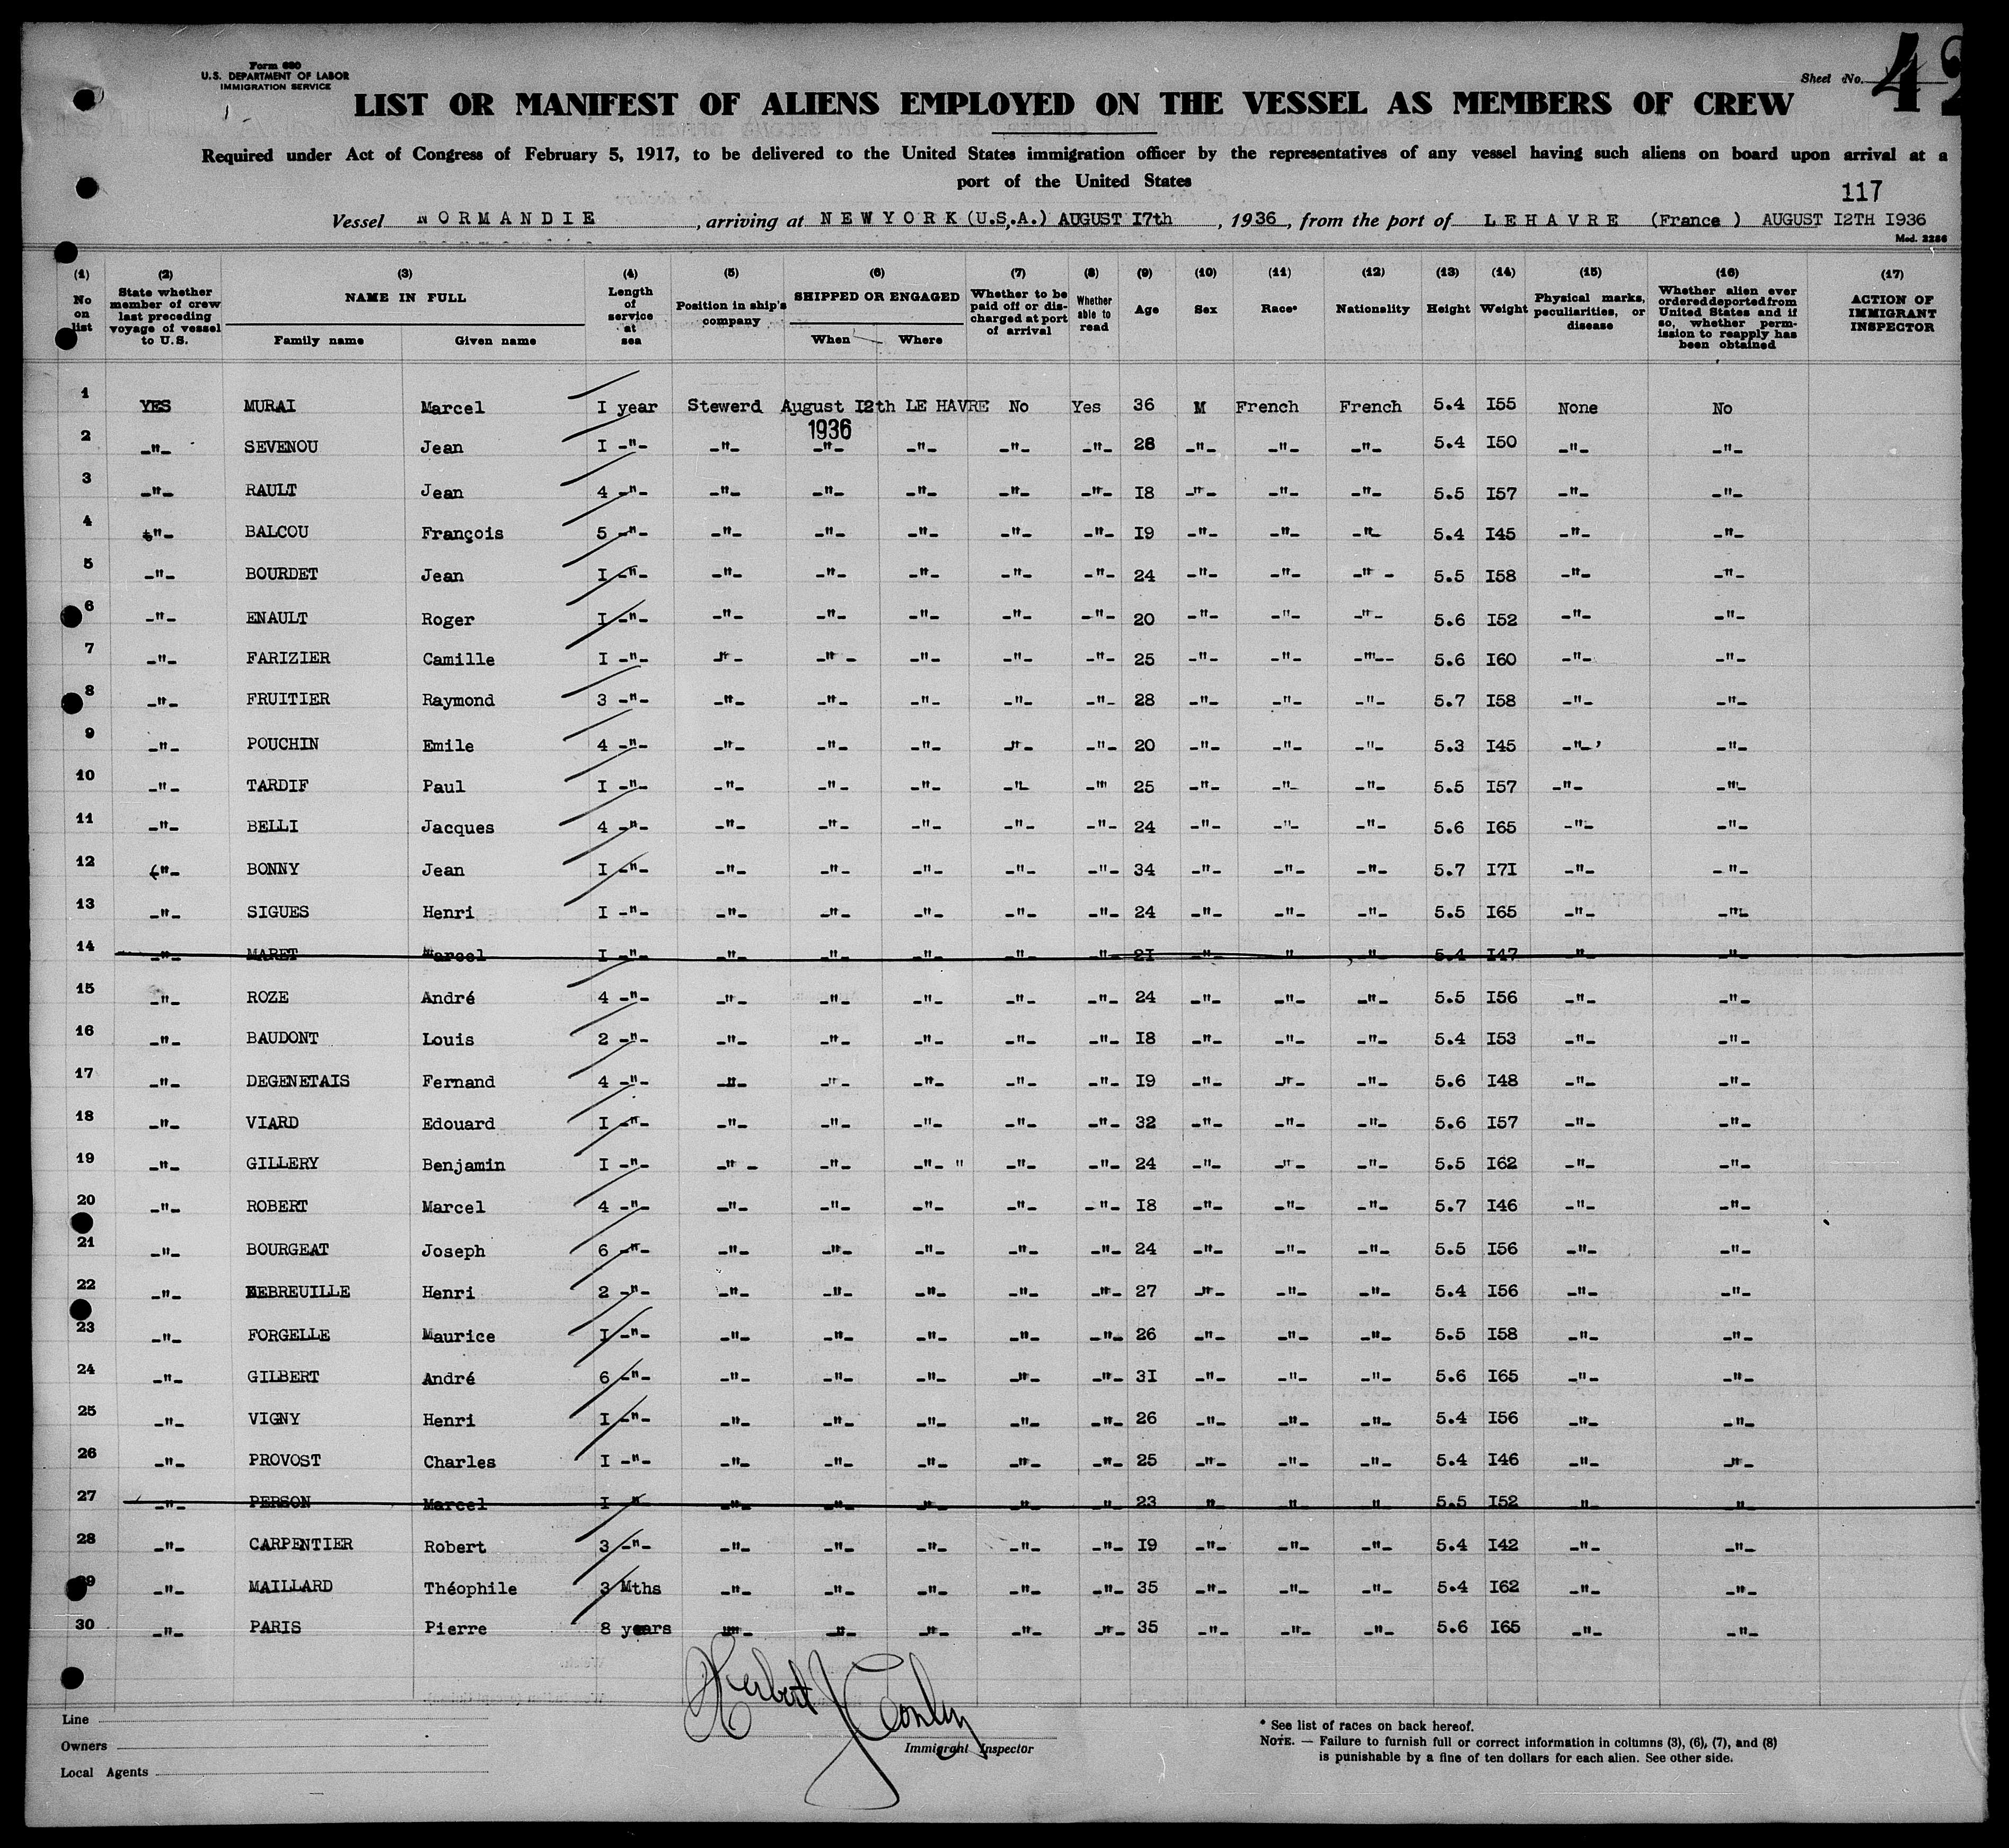 Form 680
U.S. DEPARTMENT OF LABOR
IMMIGRATION SERVICE
Sheet No. 42
LIST OR MANIFEST OF ALIENS EMPLOYED ON THE VESSEL AS MEMBERS OF CREW
Required under Act of Congress of February 5, 1917, to be delivered to the United States immigration officer by the representatives of any vessel having such aliens on board upon arrival at a
port of the United States
117
Vessel NORMANDIE, arriving at NEWYORK (U.S.A.) AUGUST I7th, 1936, from the port of LEHAVRE (France) AUGUST I2TH I936
Mod. 2286
(1) (2) (3) (4) (5) (6) (7) (8) (9) (10) (11) (12) (13) (14) (15) (16) (17)
No on list
State whether member of crew last preceding voyage of vessel to U.S.
NAME IN FULL
Family name Given name
Length of service at sea
Position in ship's company
SHIPPED OR ENGAGED
When Where
Whether to be paid off or discharged at port of arrival
Whether able to read
Age
Sex
Race*
Nationality
Height
Weight
Physical marks, peculiarities, or disease
Whether alien ever ordered deported from United States and if so, whether permission to reapply has been obtained
ACTION OF IMMIGRANT INSPECTOR
1 YES MURAI Marcel I year Stewerd August I2th LE HAVRE No Yes 36 M French French 5.4 I55 None No
1936
2 -"- SEVENOU Jean I -"- -"- -"- -"- -"- -"- 28 -"- -"- -"- 5.4 I50 -"- -"-
3 -"- RAULT Jean 4 -"- -"- -"- -"- -"- -"- I8 -"- -"- -"- 5.5 I57 -"- -"-
4 -"- BALCOU François 5 -"- -"- -"- -"- -"- -"- I9 -"- -"- -"- 5.4 I45 -"- -"-
5 -"- BOURDET Jean I -"- -"- -"- -"- -"- -"- 24 -"- -"- -"- 5.5 I58 -"- -"-
6 -"- ENAULT Roger I -"- -"- -"- -"- -"- -"- 20 -"- -"- -"- 5.6 I52 -"- -"-
7 -"- FARIZIER Camille I -"- -"- -"- -"- -"- -"- 25 -"- -"- -"- 5.6 I60 -"- -"-
8 -"- FRUITIER Raymond 3 -"- -"- -"- -"- -"- -"- 28 -"- -"- -"- 5.7 I58 -"- -"-
9 -"- POUCHIN Emile 4 -"- -"- -"- -"- -"- -"- 20 -"- -"- -"- 5.3 I45 -"- -"-
10 -"- TARDIF Paul I -"- -"- -"- -"- -"- -"- 25 -"- -"- -"- 5.5 I57 -"- -"-
11 -"- BELLI Jacques 4 -"- -"- -"- -"- -"- -"- 24 -"- -"- -"- 5.6 I65 -"- -"-
12 -"- BONNY Jean I -"- -"- -"- -"- -"- -"- 34 -"- -"- -"- 5.7 I7I -"- -"-
13 -"- SIGUES Henri I -"- -"- -"- -"- -"- -"- 24 -"- -"- -"- 5.5 I65 -"- -"-
14 -"- MARET Marcel I -"- -"- -"- -"- -"- -"- 2I -"- " -"- 5.4 I47 -"- -"-
15 -"- ROZE André 4 -"- -"- -"- -"- -"- -"- 24 -"- -"- -"- 5.5 I56 -"- -"-
16 -"- BAUDONT Louis 2 -"- -"- -"- -"- -"- -"- I8 -"- -"- -"- 5.4 I53 -"- -"-
17 -"- DEGENETAIS Fernand 4 -"- -"- -"- -"- -"- -"- I9 -"- -"- -"- 5.6 I48 -"- -"-
18 -"- VIARD Edouard I -"- -"- -"- -"- -"- -"- 32 -"- -"- -"- 5.6 I57 -"- -"-
19 -"- GILLERY Benjamin I -"- -"- -"- -"- " -"- -"- 24 -"- -"- -"- 5.5 I62 -"- -"-
20 -"- ROBERT Marcel 4 -"- -"- -"- -"- -"- -"- I8 -"- -"- -"- 5.7 I46 -"- -"-
21 -"- BOURGEAT Joseph 6 -"- -"- -"- -"- -"- -"- 24 -"- -"- -"- 5.5 I56 -"- -"-
22 -"- DEBREUILLE Henri 2 -"- -"- -"- -"- -"- -"- 27 -"- -"- -"- 5.4 I56 -"- -"-
23 -"- FORGELLE Maurice I -"- -"- -"- -"- -"- -"- 26 -"- -"- -"- 5.5 I58 -"- -"-
24 -"- GILBERT André 6 -"- -"- -"- -"- -"- -"- 3I -"- -"- -"- 5.6 I65 -"- -"-
25 -"- VIGNY Henri I -"- -"- -"- -"- -"- -"- 26 -"- -"- -"- 5.4 I56 -"- -"-
26 -"- PROVOST Charles I -"- -"- -"- -"- -"- -"- 25 -"- -"- -"- 5.4 I46 -"- -"-
27 -"- PERSON Marcel I " -"- -"- -"- -"- " 23 " " " 5.5 I52 " "
28 -"- CARPENTIER Robert 3 -"- -"- -"- -"- -"- -"- I9 -"- -"- -"- 5.4 I42 -"- -"-
29 -"- MAILLARD Théophile 3 Mths -"- -"- -"- -"- -"- 35 -"- -"- -"- 5.4 I62 -"- -"-
30 -"- PARIS Pierre 8 years -"- -"- -"- -"- -"- 35 -"- -"- -"- 5.6 I65 -"- -"-
Herbert J Conley
Immigrant Inspector
Line
Owners
Local Agents
* See list of races on back hereof.
NOTE. — Failure to furnish full or correct information in columns (3), (6), (7), and (8)
is punishable by a fine of ten dollars for each alien. See other side.